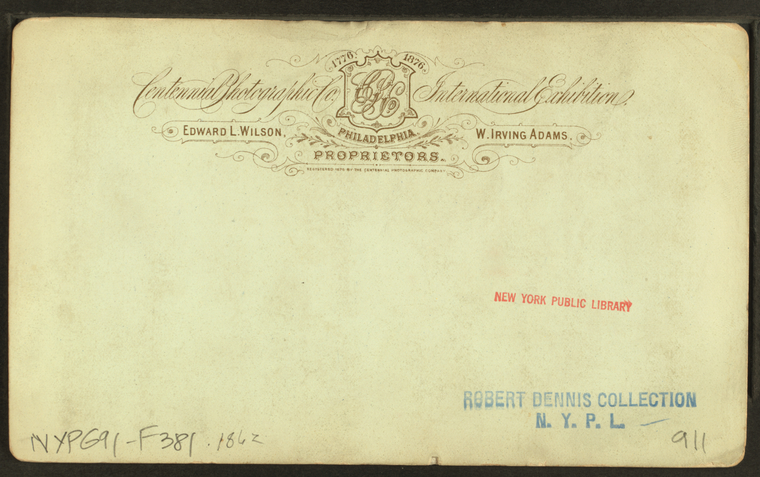 1776. 1876.
Centennial Photographic Co. CPC International Exhibition.
PHILADELPHIA.
EDWARD L. WILSON, W. IRVING ADAMS.
PROPRIETORS.
REGISTERED 1876 BY THE CENTENNIAL PHOTOGRAPHIC COMPANY
NEW YORK PUBLIC LIBRARY
ROBERT DENNIS COLLECTION
N. Y. P. L.
NYPG91-F381.1862
911